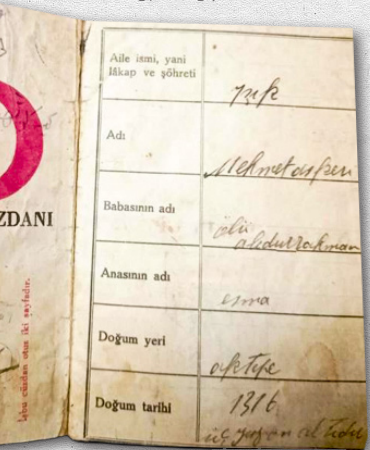 ZDANI
İşbu cüzdan otuz iki sayfadır.
Aile ismi, yani
lâkap ve şöhreti
Adı
Mehmet asker
Babasının adı
ölü
abdurrahman
Anasının adı
esma
Doğum yeri
aktepe
Doğum tarihi
1316
üç yüz on altıdır